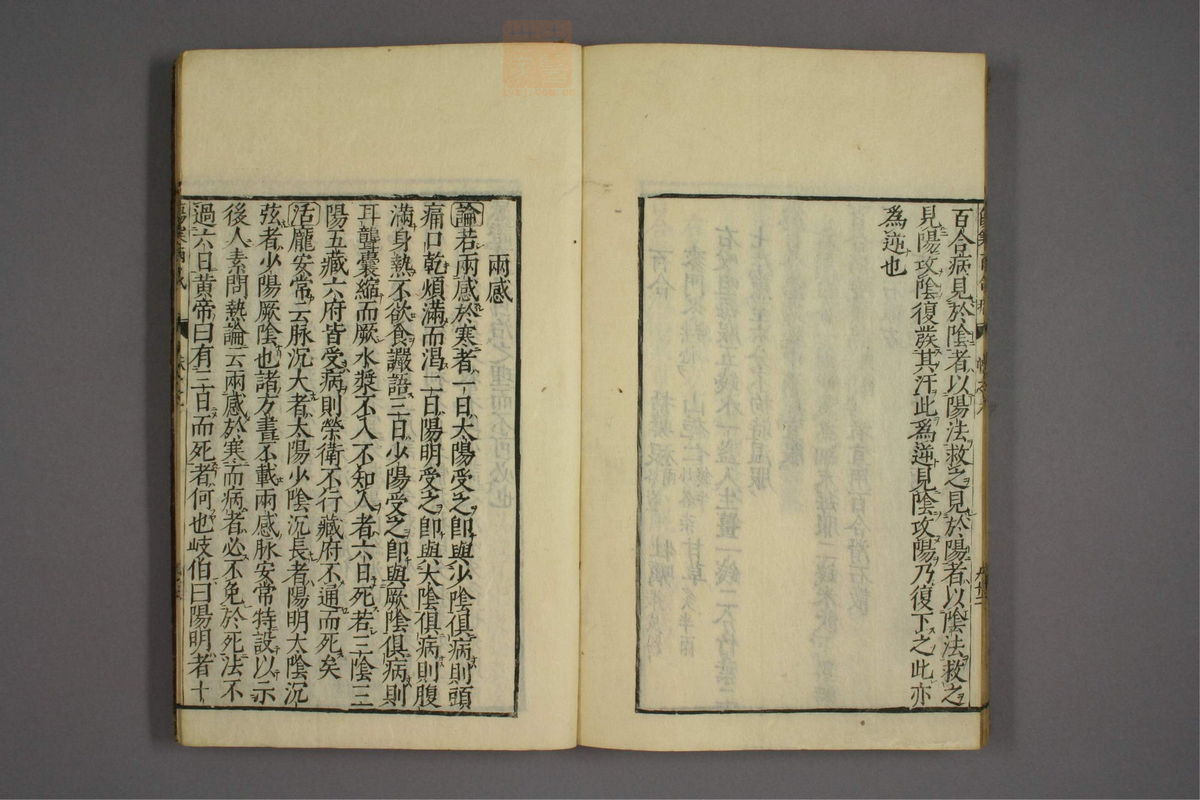 百合病見於陰者以陽法救之見於陽者以陰法救之
見陽攻陰復發其汗此為逆見陰攻陽乃復下之此亦
為逆也
兩感
論若兩感於寒者一日太陽受之卽與少陰俱病則頭
痛口乾煩滿而渴二日陽明受之卽與太陰俱病則腹
滿身熱不欲食讝語三日少陽受之卽與厥陰俱病則
耳聾囊縮而厥水漿不入不知人者六日死若三陰三
陽五藏六府皆受病則榮衛不行藏府不通而死矣
活龐安常云脉沉大者太陽少陰沉長者陽明太陰沉
弦者少陽厥陰也諸方書不載兩感脉安常特設以示
後人素問熱論云兩感於寒而病者必不免於死法不
過六日黃帝曰有三日而死者何也岐伯曰陽明者十